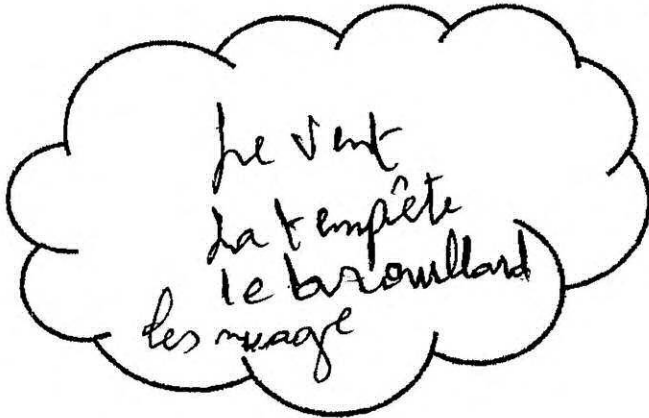 Le vent
La tempête
le brouillard
les nuage